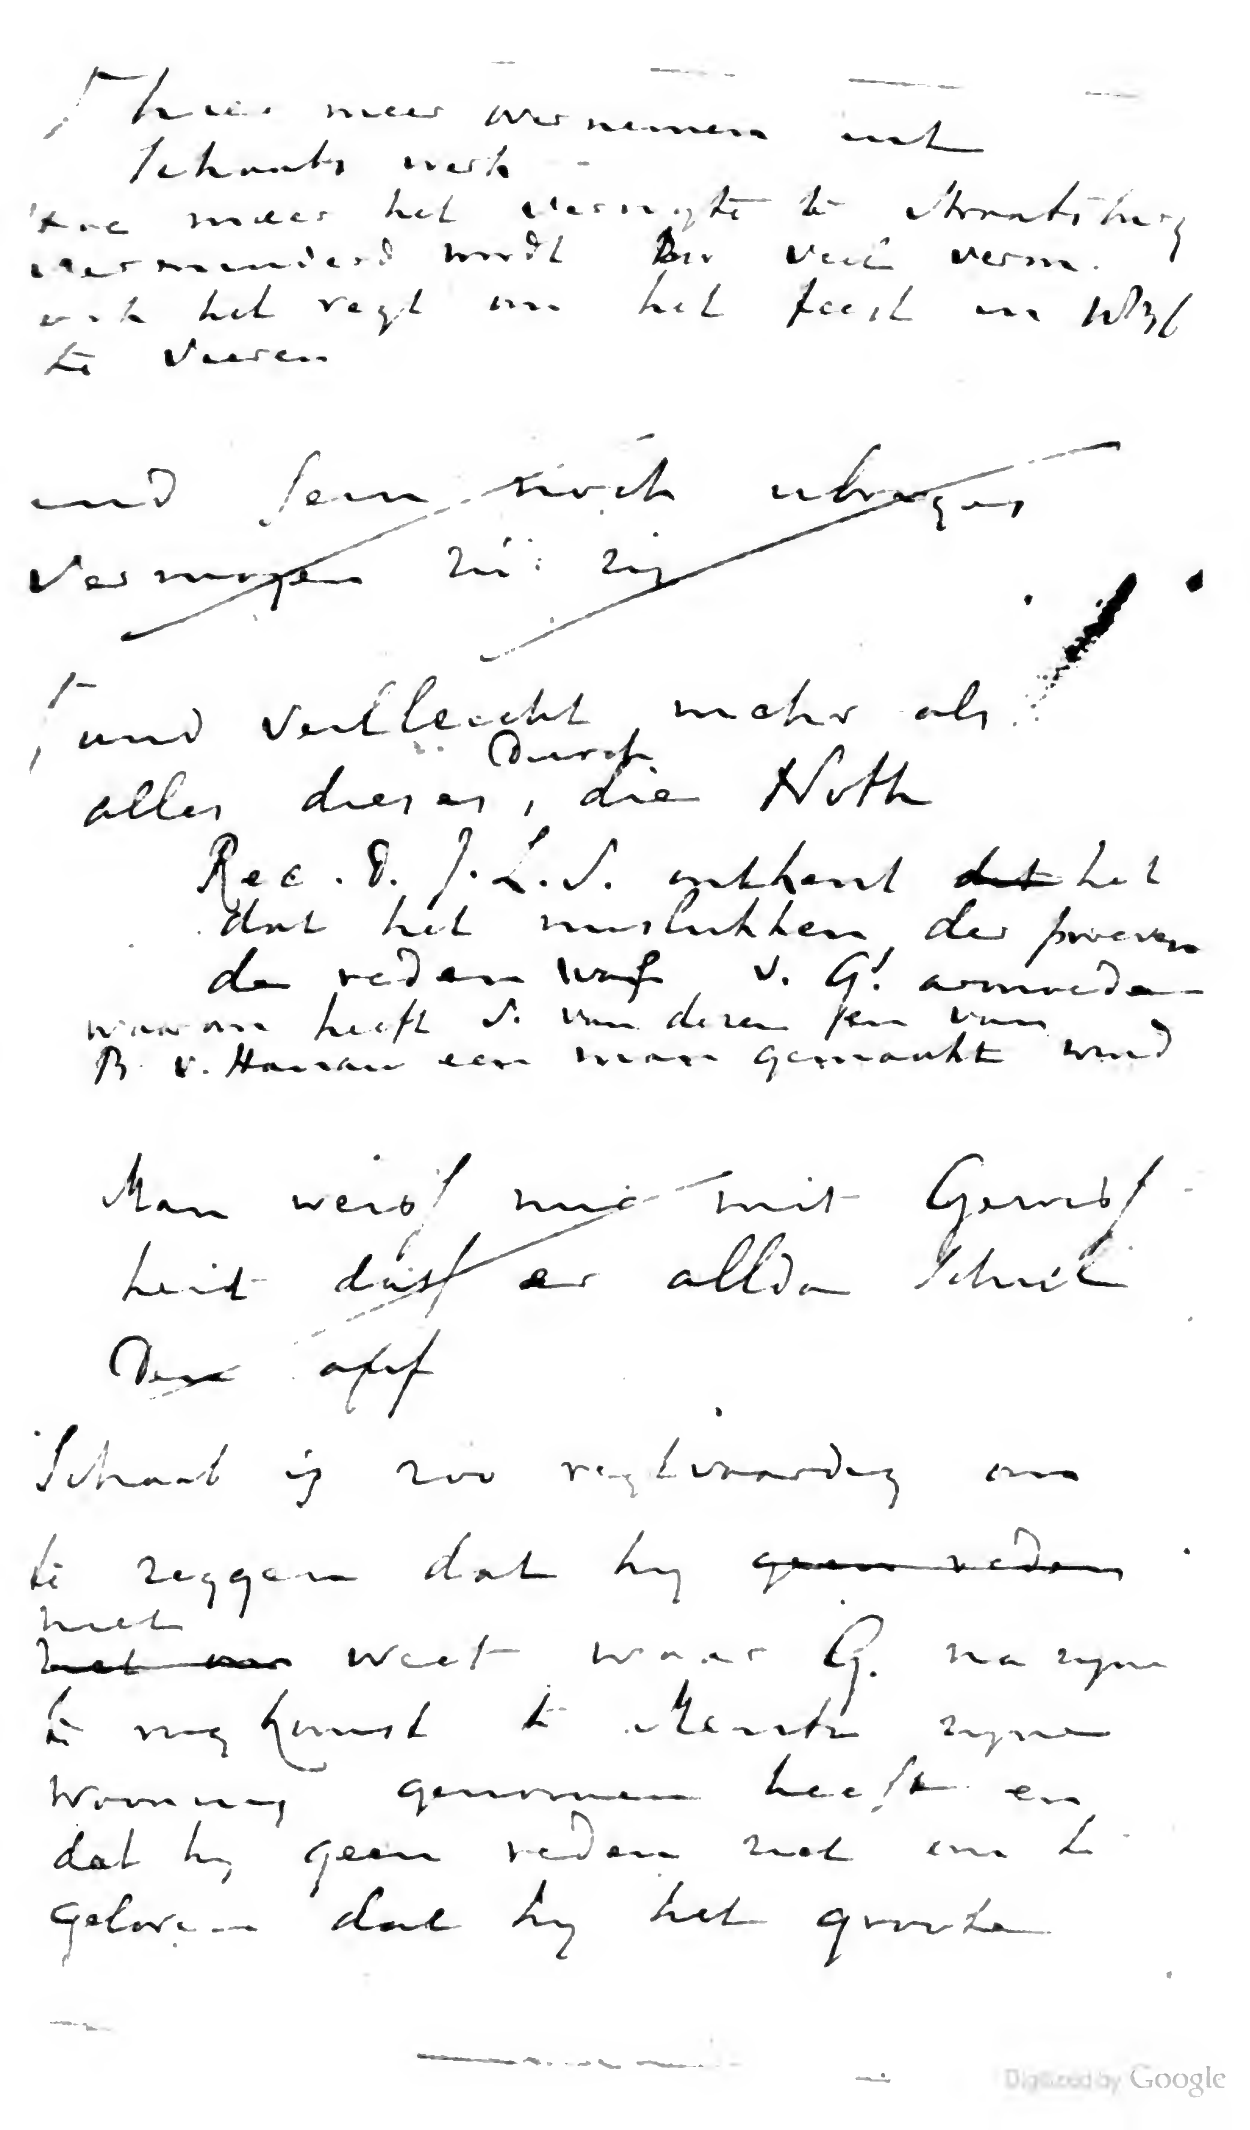 hier meer overnemen uit
Schaabs werk
Hoe meer het verrigte te Straatsburg
verminderd wordt hoe veel verm.
ook het regt om het feest in
te vieren
und sein noch übriges
Vermögen zu
und veilleicht mehr als
durch
alles dieses, die Noth
Rec. d. J.L.S. ontkent dat het
dat het mislukken der proeven
de reden was v. G's armoede
waarom heeft S. van deze
B. v. Hanau een man gemaakt
Man weisß nur mit Gewiß
heit daß er allda
Den
Schaab is zoo regtvaardig om
te zeggen dat hy geen reden
niet
weet waar G. na zyne
te rug komst te Mentz zyne
woning genomen heeft en
dat hy geen reden ziet om te
geloven dat hy het groote
Digitized by Google